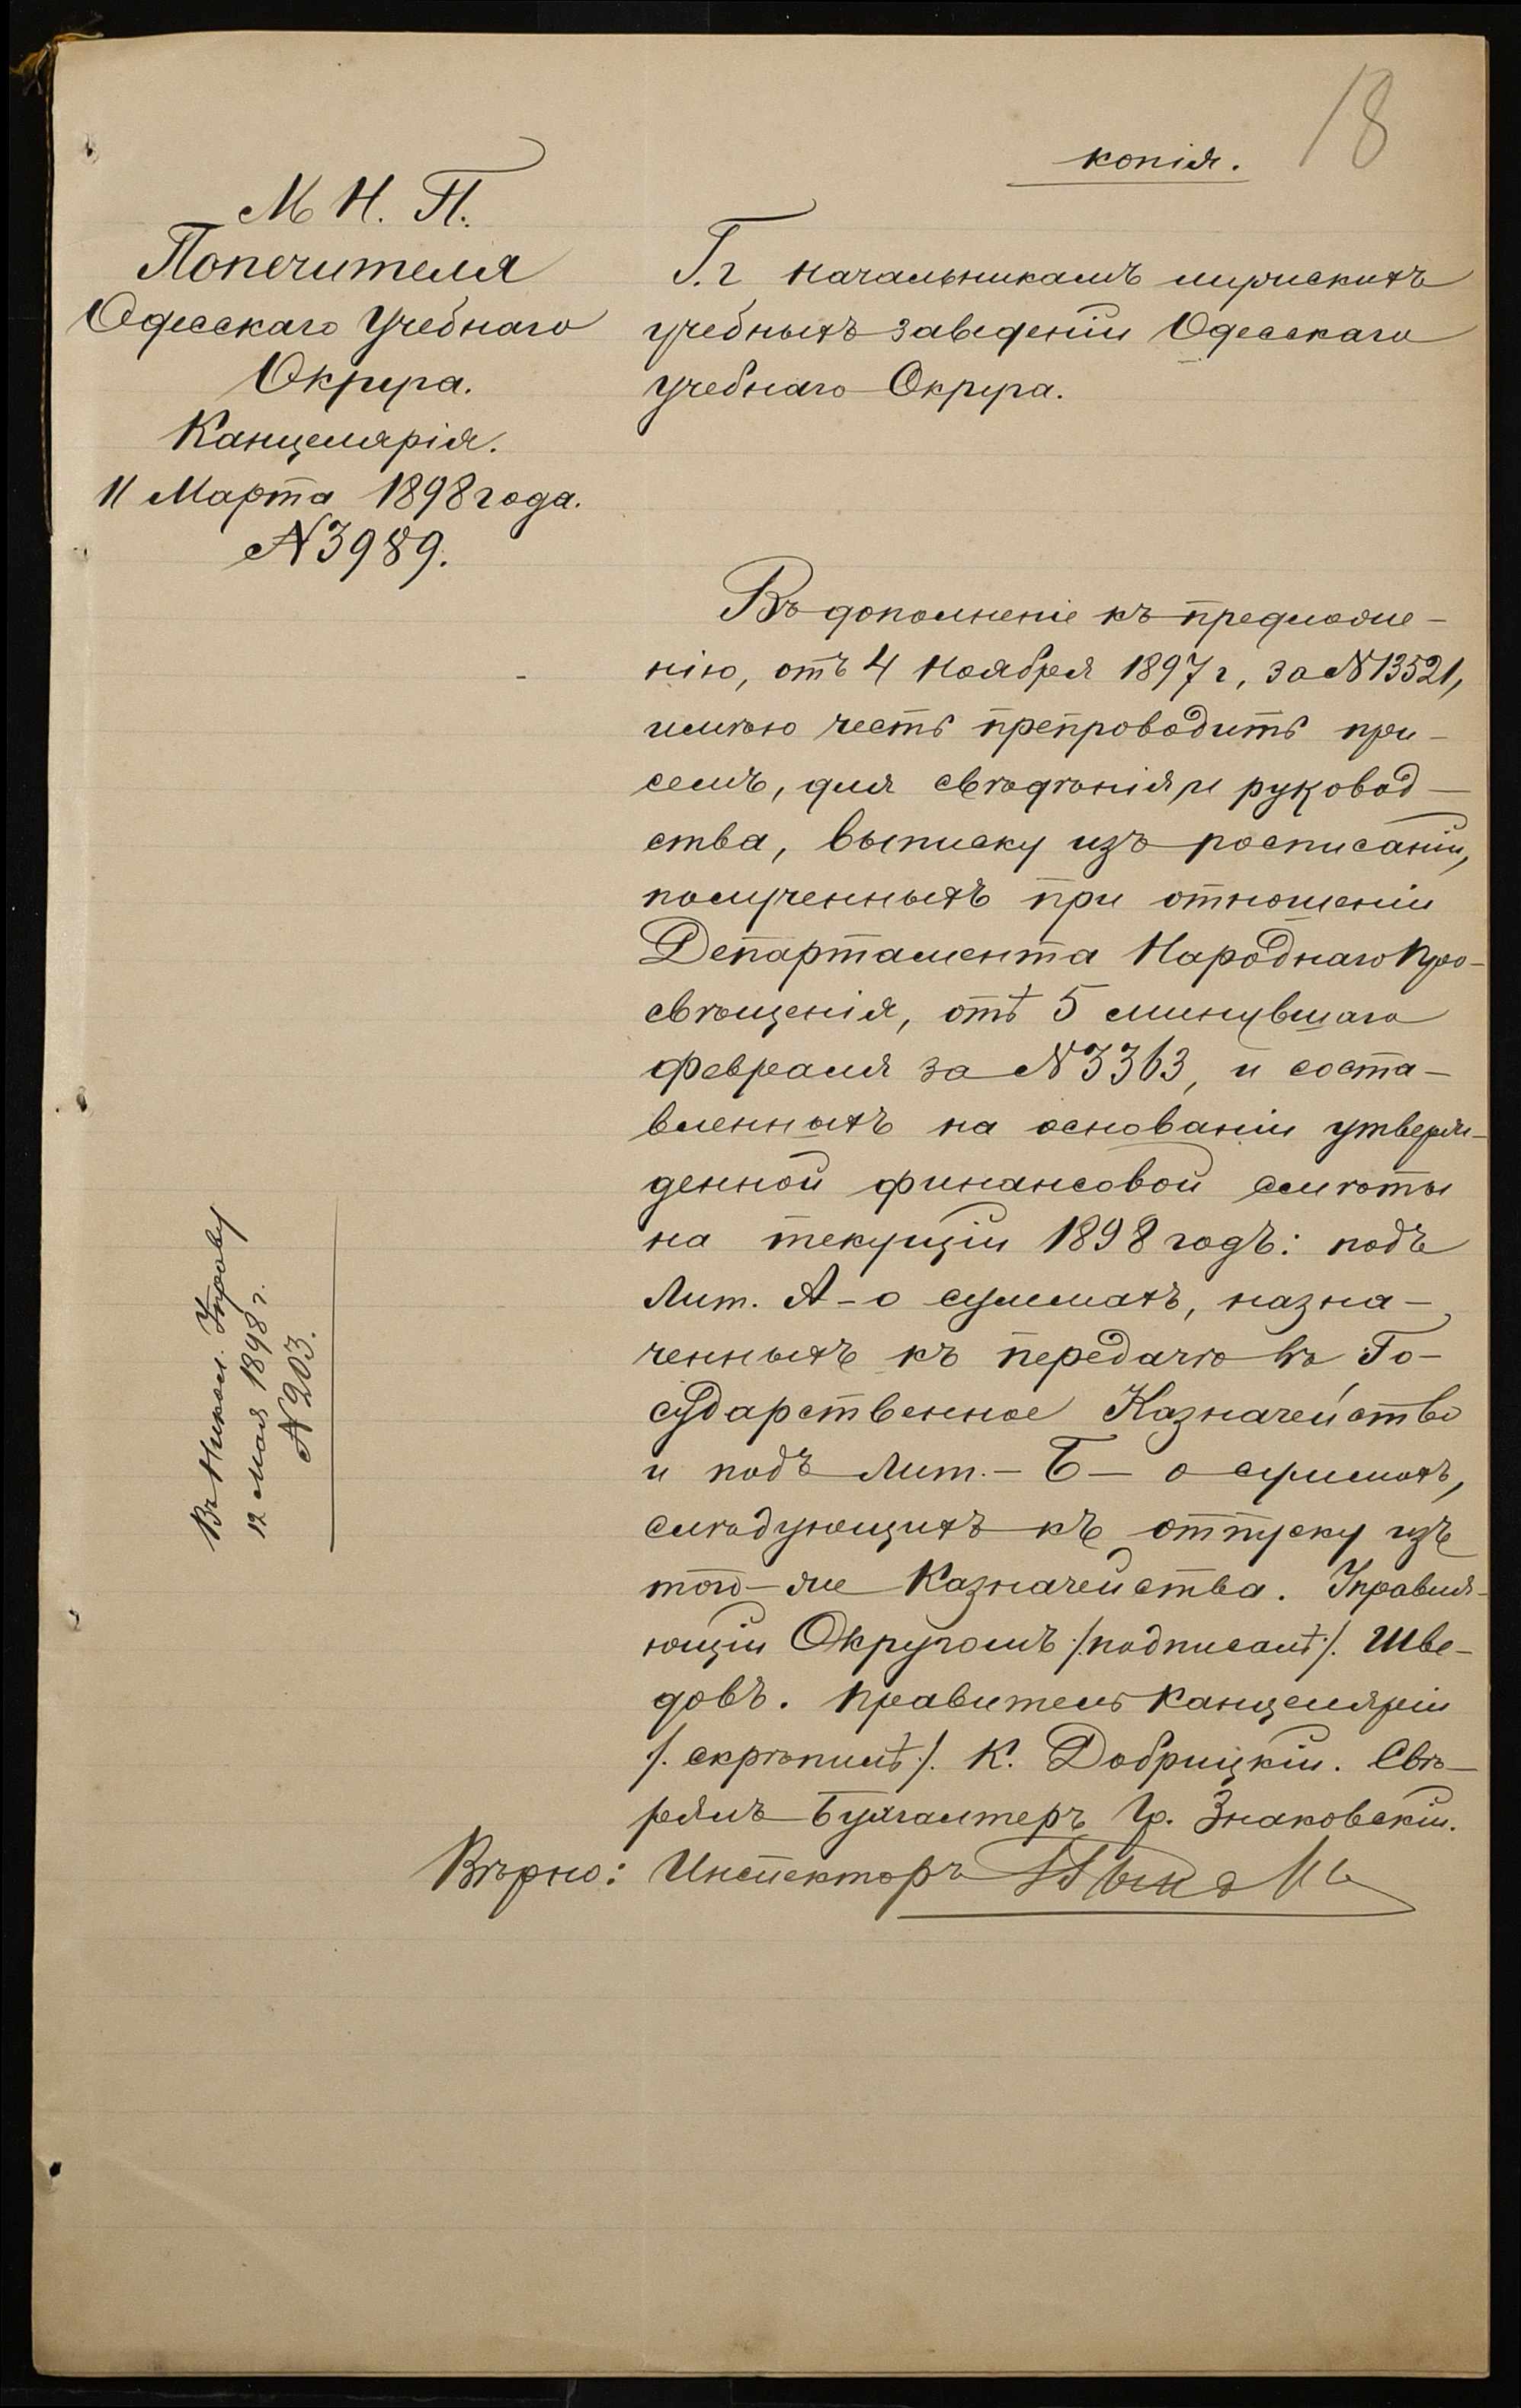 18
копія.
М Н. П.
Попечителя
Одесскаго Учебнаго
Округа.
Канцелярія.
11 Марта 1898 года.
№ 3989.
Г.г Начальникамъ мужскихъ
учебныхъ заведеній Одесскаго
учебнаго Округа.
Въ дополненіе къ предложе-
нію, отъ 4 Ноября 1897 г, за № 13521,
имѣю честь препроводить при
семъ, для свѣдѣнія и руковод-
ства, выписку изъ росписаній,
полученныхъ при отношеніи
Департамента Народнаго Про-
свѣщенія, отъ 5 минувшаго
февраля за № 3363, и соста-
вленныхъ на основаніи утверж-
денной финансовой смѣты
на текущій 1898 годъ: подъ
Лит. А - о суммахъ, назна-
ченныхъ къ передачѣ въ Го-
сударственное Казначейство
и подъ Лит. - Б - о суммахъ,
слѣдующихъ къ отпуску изъ
того-же Казначейства. Управля-
ющій Округомъ /.подписалъ./. Шве-
довъ. Правитель Канцеляріи
/.скрѣпилъ./. К. Добрицкій. Свѣ-
рялъ Бухгалтеръ Гр. Знаковскій.
Вѣрно: Инспекторъ
Въ Никол. Управу
12 Мая 1898 г.
№ 203.